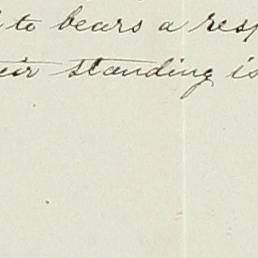 to bears a resp
eir standing is